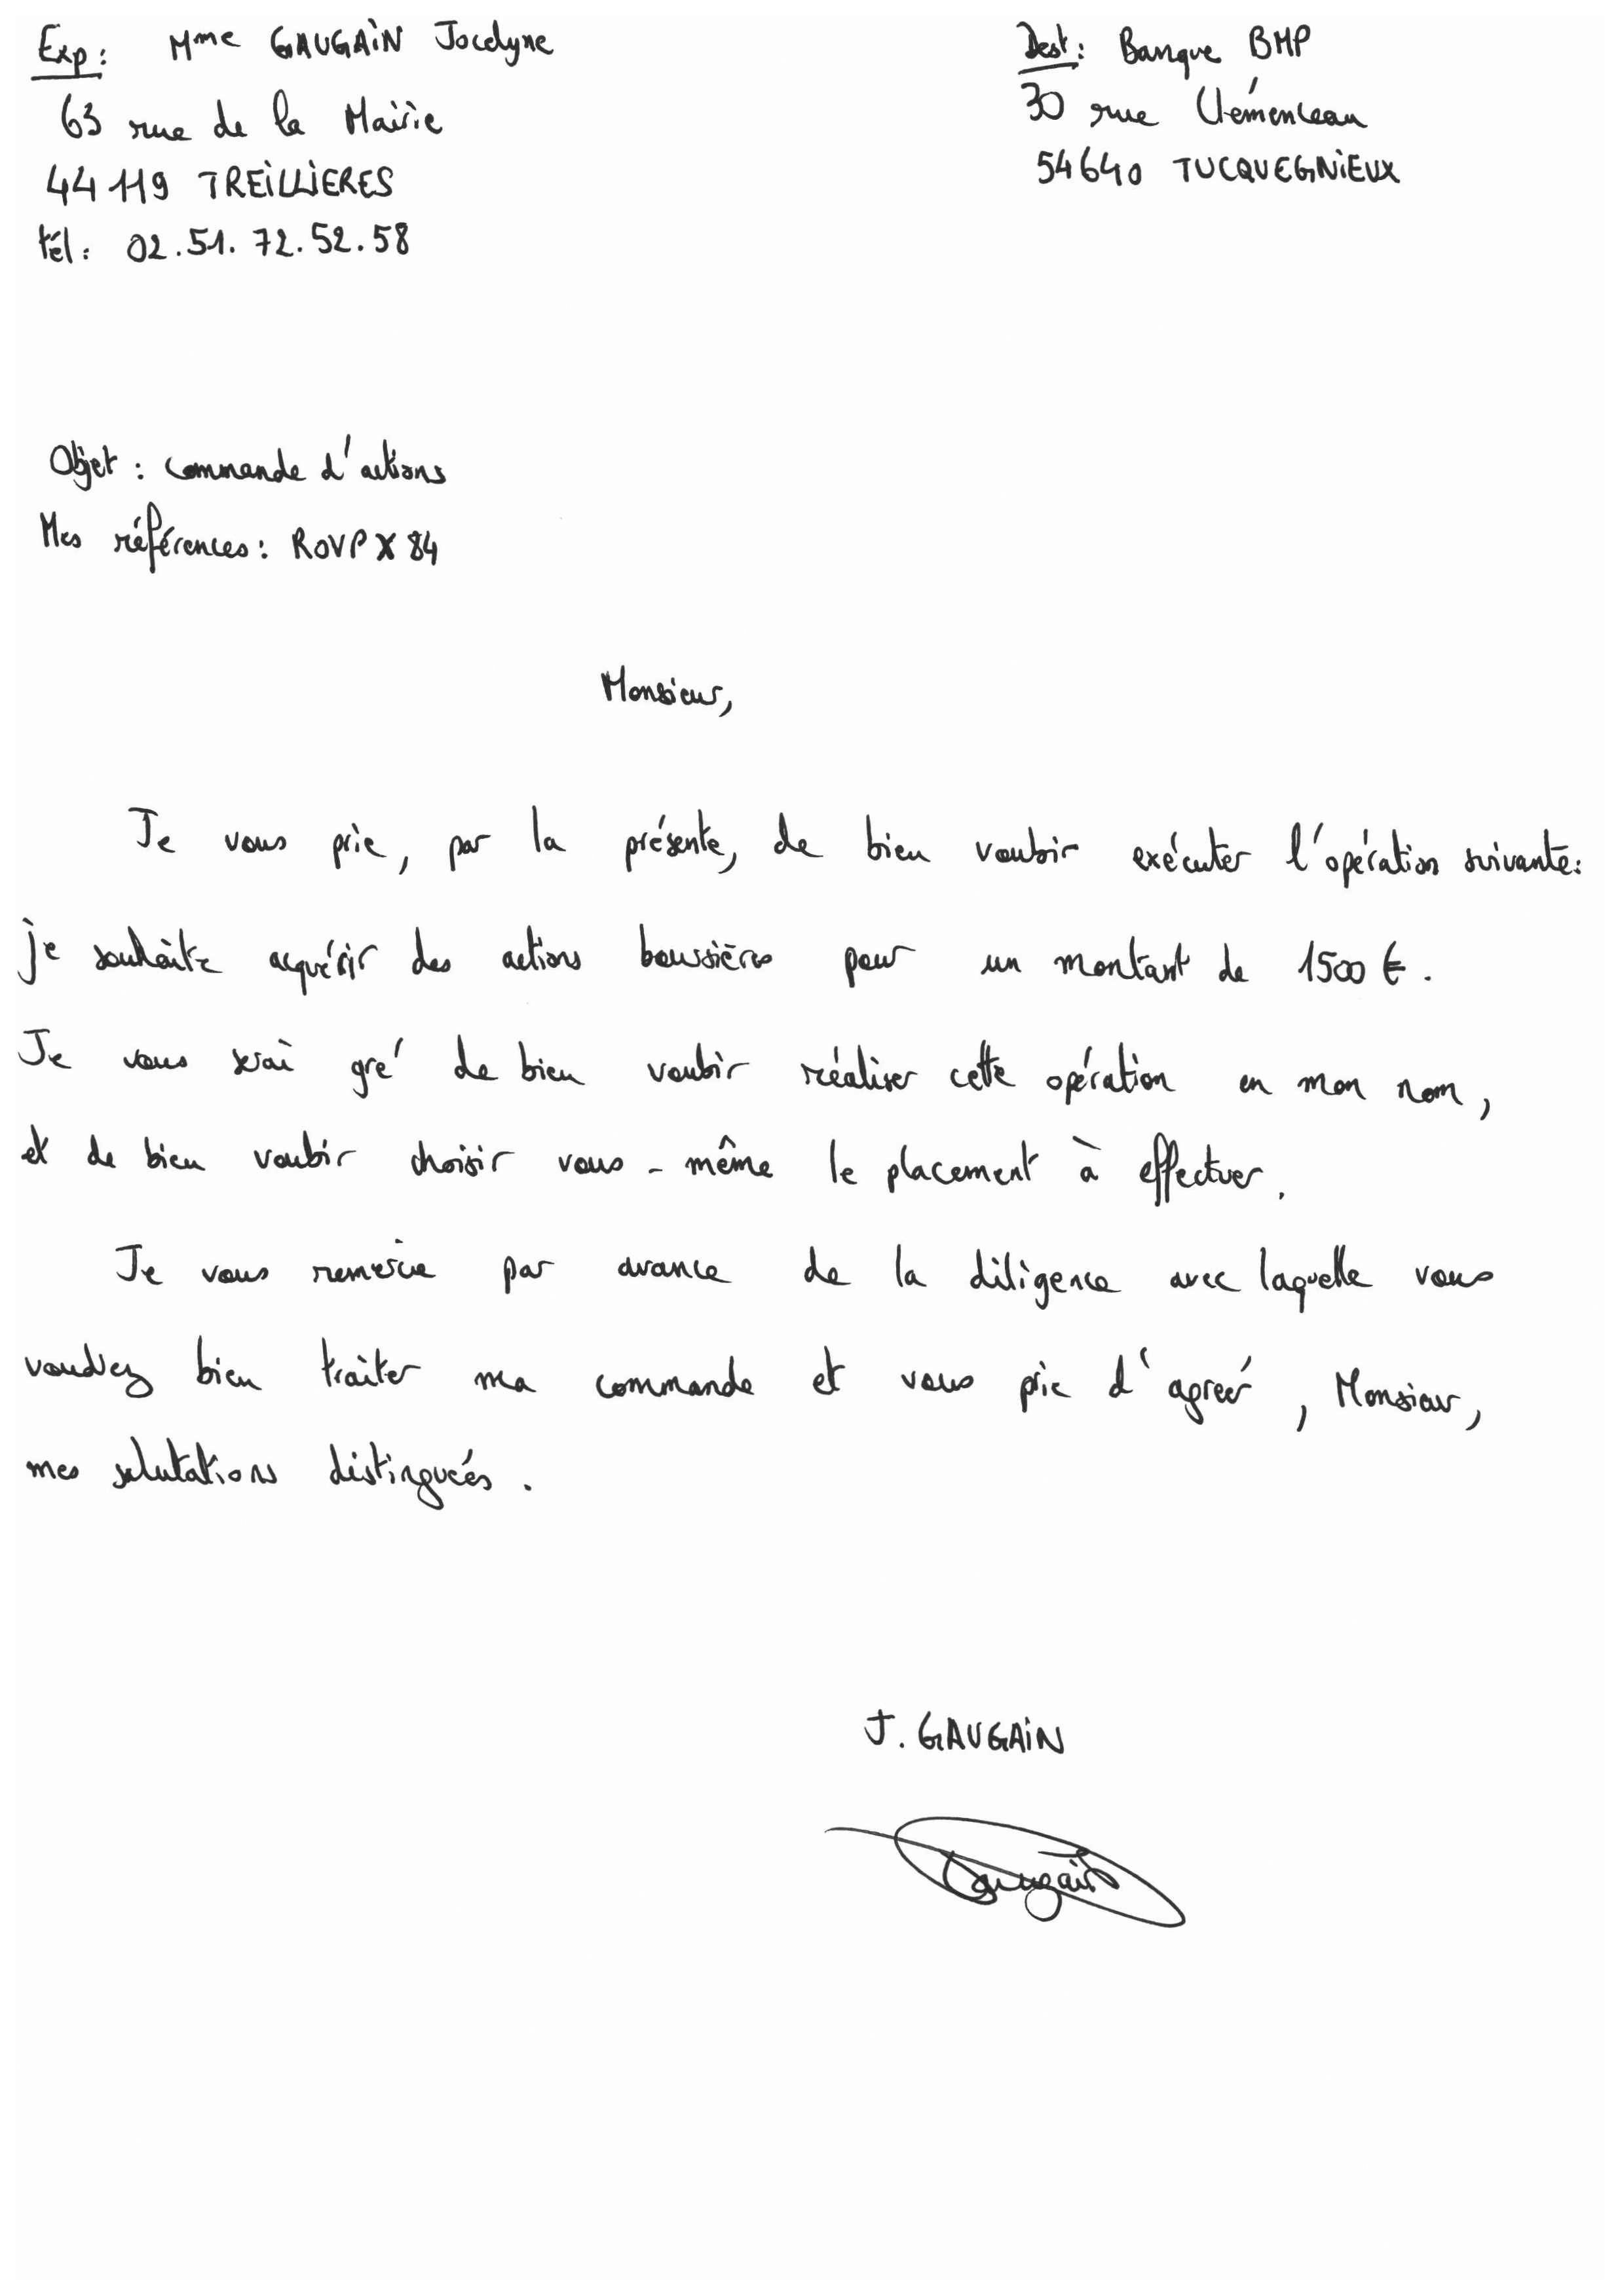 Exp: Mme GAUGAIN Jocelyne
63 rue de la Mairie
44119 TREILLIERES
tél: 02.51.72.52.58
Dest: Banque BMP
30 rue Clémenceau
54640 TUCQUEGNIEUX
Objet: commande d'actions
Mes références: ROVPX84
Monsieur,
Je vous prie, par la présente, de bien vouloir exécuter l'opération suivante:
je souhaite acquérir des actions boursières pour un montant de 1500 €.
Je vous serai gré de bien vouloir réaliser cette opération en mon nom,
et de bien vouloir choisir vous-même le placement à effectuer.
Je vous remercie par avance de la diligence avec laquelle vous
voudrez bien traiter ma commande et vous prie d'agréer, Monsieur,
mes salutations distinguées.
J. GAUGAIN
Gaugain